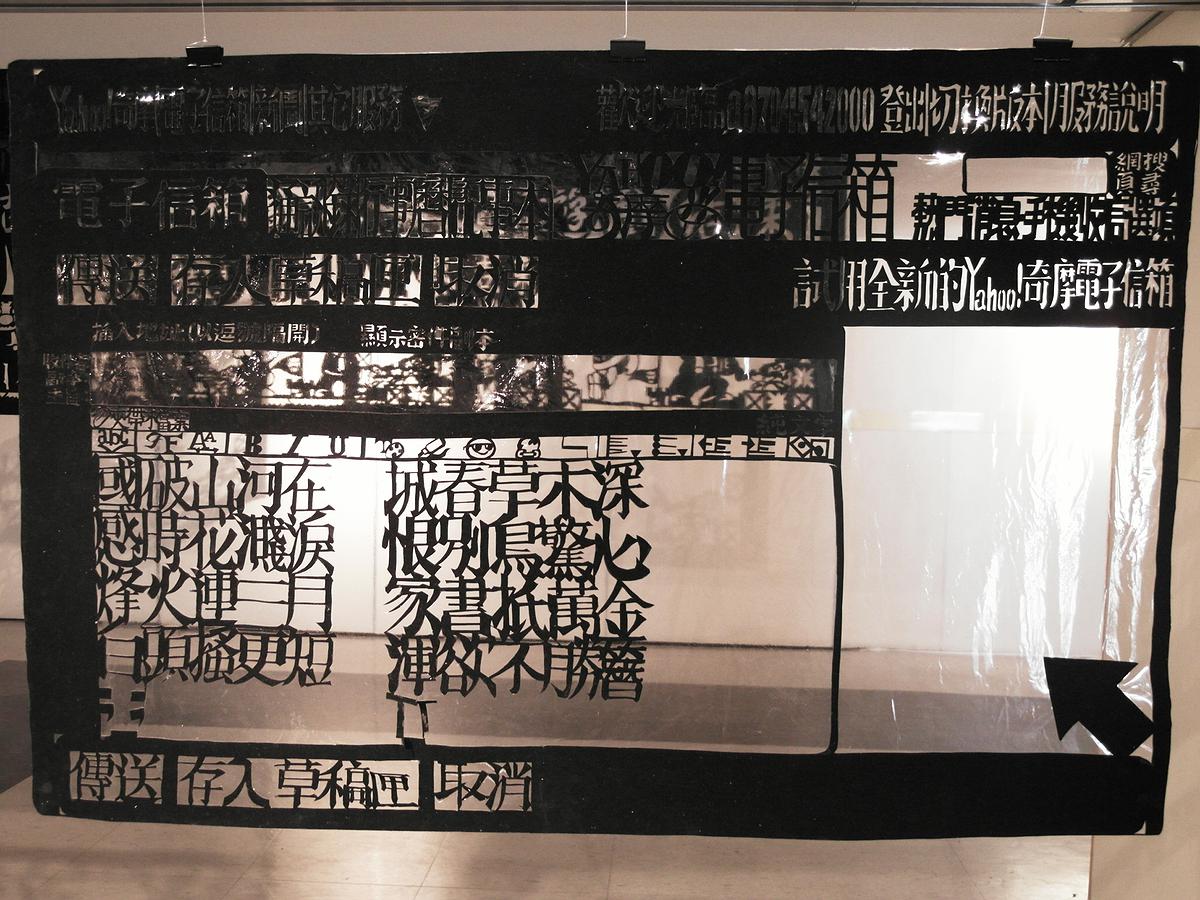 Yahoo!奇摩 電子信箱 新聞 其它服務
歡迎光臨, 登出 切換版本 服務說明
YAHOO!奇摩 電子信箱
搜尋
網頁
電子信箱
熱門消息 手機收信 選項
傳送 存入草稿匣 取消
試用全新的Yahoo!奇摩電子信箱
插入地址(以逗號隔開) 顯示密件副本
純文字
abc B I U
國破山河在 城春草木深
感時花濺淚 恨別鳥驚心
烽火連三月 家書抵萬金
白頭搔更短 渾欲不勝簪
傳送 存入草稿匣 取消